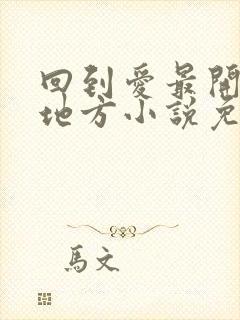 回到愛最開
地方小說免
馬文